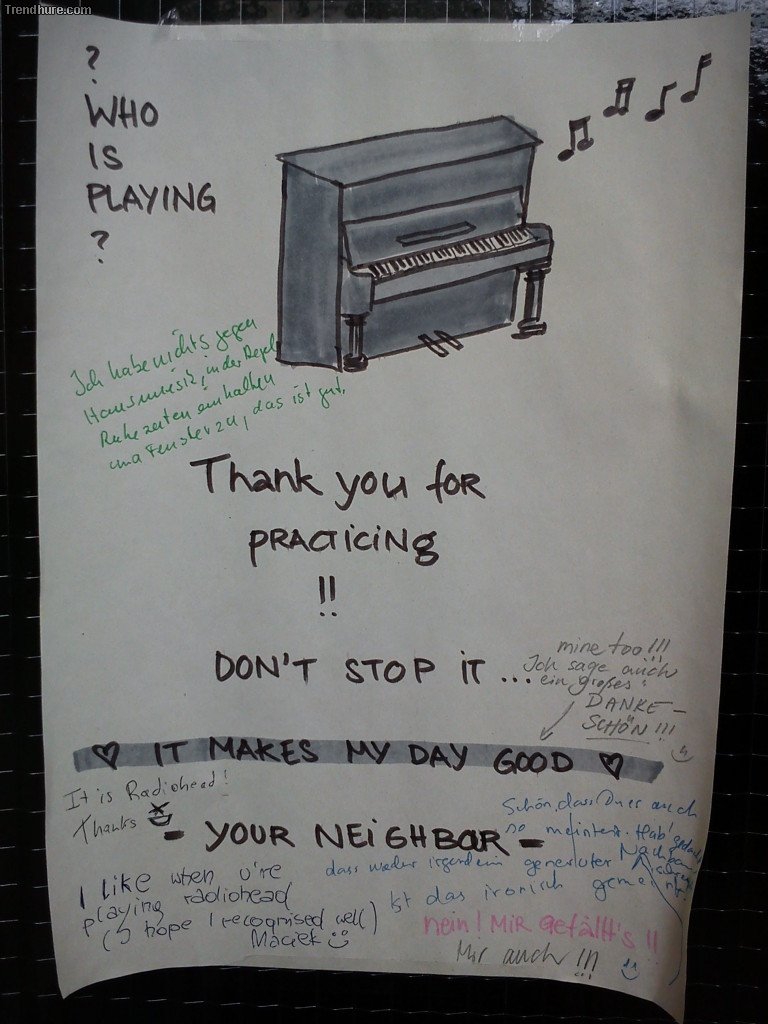 Trendhure.com
?
WHO
IS
PLAYING
?
Ich habe nichts gegen
Hausmusik, in der Regel
Ruhezeiten einhalten
und Fenster zu, das ist gut.
Thank you for
PRACTICING
!!
DON'T STOP IT ...
mine too!!!
Ich sage auch
ein großes:
DANKE-
SCHÖN!!!
♡ IT MAKES MY DAY GOOD ♡
It is Radiohead!
Thanks
- YOUR NEIGHBOR -
I like when u're
playing radiohead
(I hope I recognised well)
Maciek
Schön, dass Du es auch
so meintest. Hab' gedacht
dass wieder irgendein generster Nachbar
Ist das ironisch gemeint?
nein! Mir gefällt's !!
Mir auch !!!